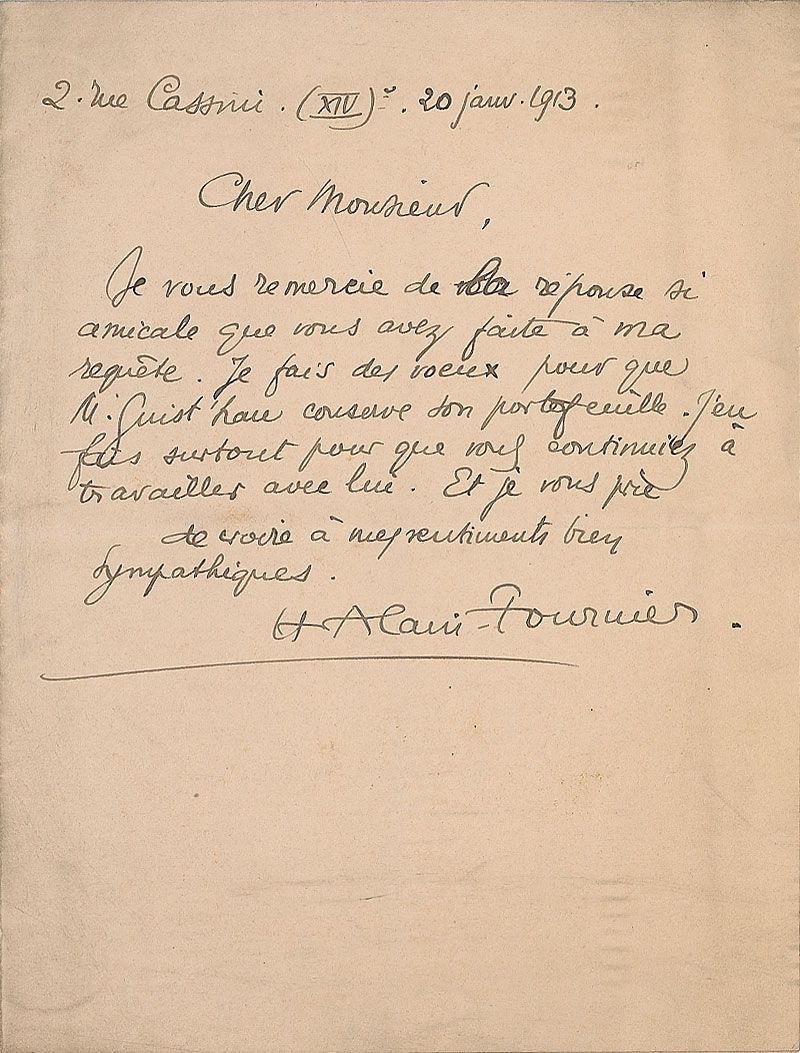 2. rue Cassini. (XIV)e. 20 janv. 1913.
Cher Monsieur,
Je vous remercie de la réponse si
amicale que vous avez faite à ma
requête. Je fais des voeux pour que
M. Guist'hau conserve son portefeuille. J'en
fais surtout pour que vous continuiez à
travailler avec lui. Et je vous prie
de croire à mes sentiments bien
sympathiques.
H Alain-Fournier.